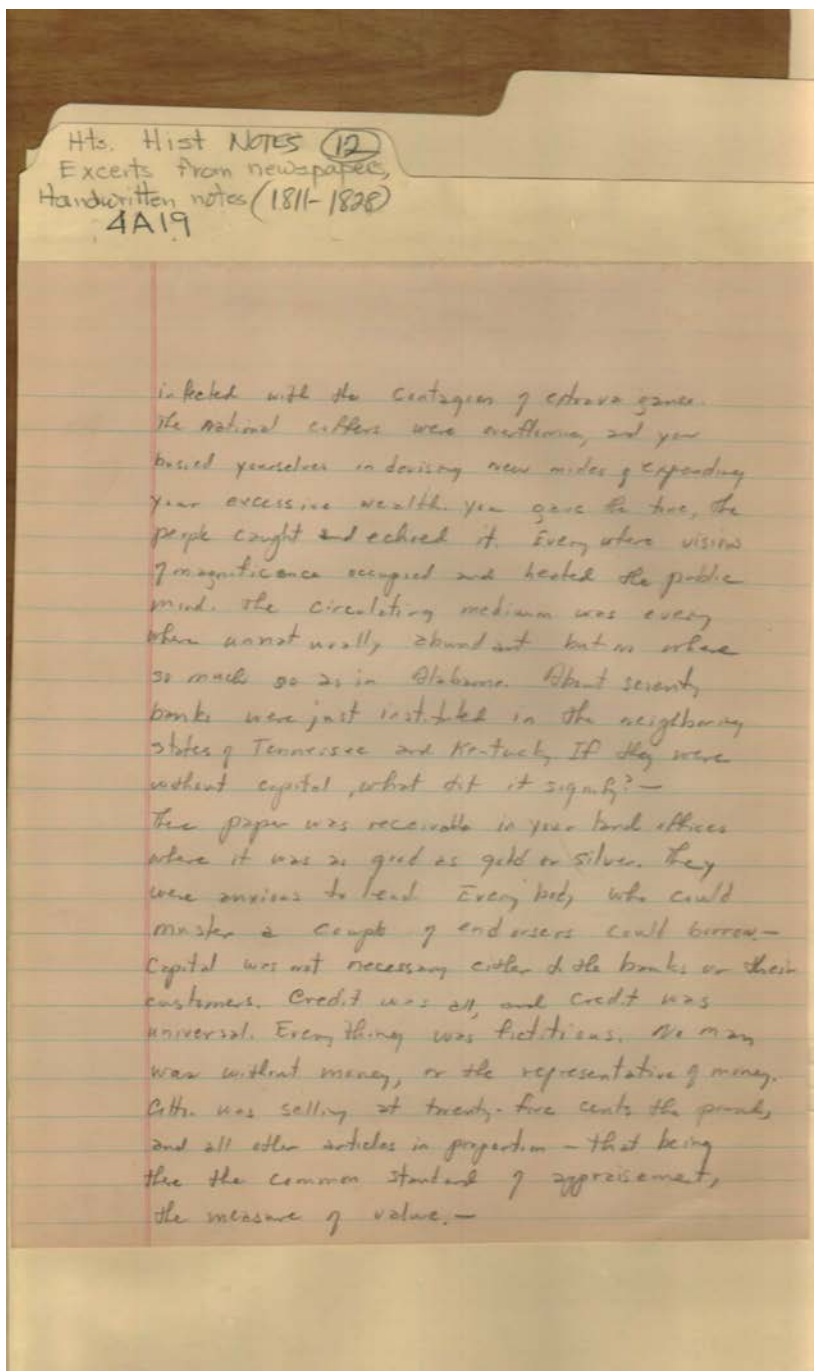 Hts. Hist NOTES (12)
Excerts from newspapers,
Handwritten notes (1811-1828)
4A19
infected with the contagion of extravagance.
The national coffers were overflowing, and you
busied yourselves in devising new modes of expending
your excessive wealth. You gave the tone, the
people caught and echoed it. Every where vision
of magnificence occupied and heated the public
mind. The circulating medium was every
where unnaturally abundant but no where
so much so as in Alabama. About seventy
banks were just instituted in the neighboring
states of Tennessee and Kentucky. If they were
without capital, what did it signify? —
Their paper was receivable in your land offices
where it was as good as gold or silver. They
were anxious to lend. Every body who could
muster a couple of endorsers could borrow. —
Capital was not necessary either to the banks or their
customers. Credit was all, and credit was
universal. Every thing was fictitious. No man
was without money, or the representative of money.
Cotton was selling at twenty-five cents the pound,
and all other articles in proportion — that being
then the common standard of appraisement,
the measure of value. —